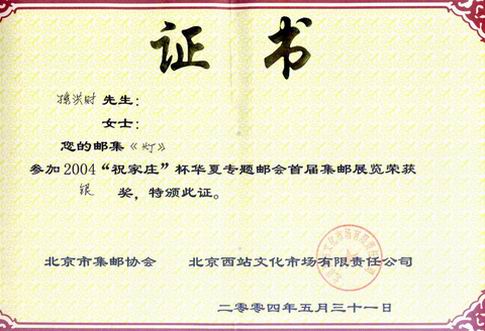 证书
孙洪财先生：
女士：
您的邮集《灯》
参加2004“祝家庄”杯华夏专题邮会首届集邮展览荣获
银 奖，特颁此证。
北京市集邮协会 北京西站文化市场有限责任公司
二零零四年五月三十一日